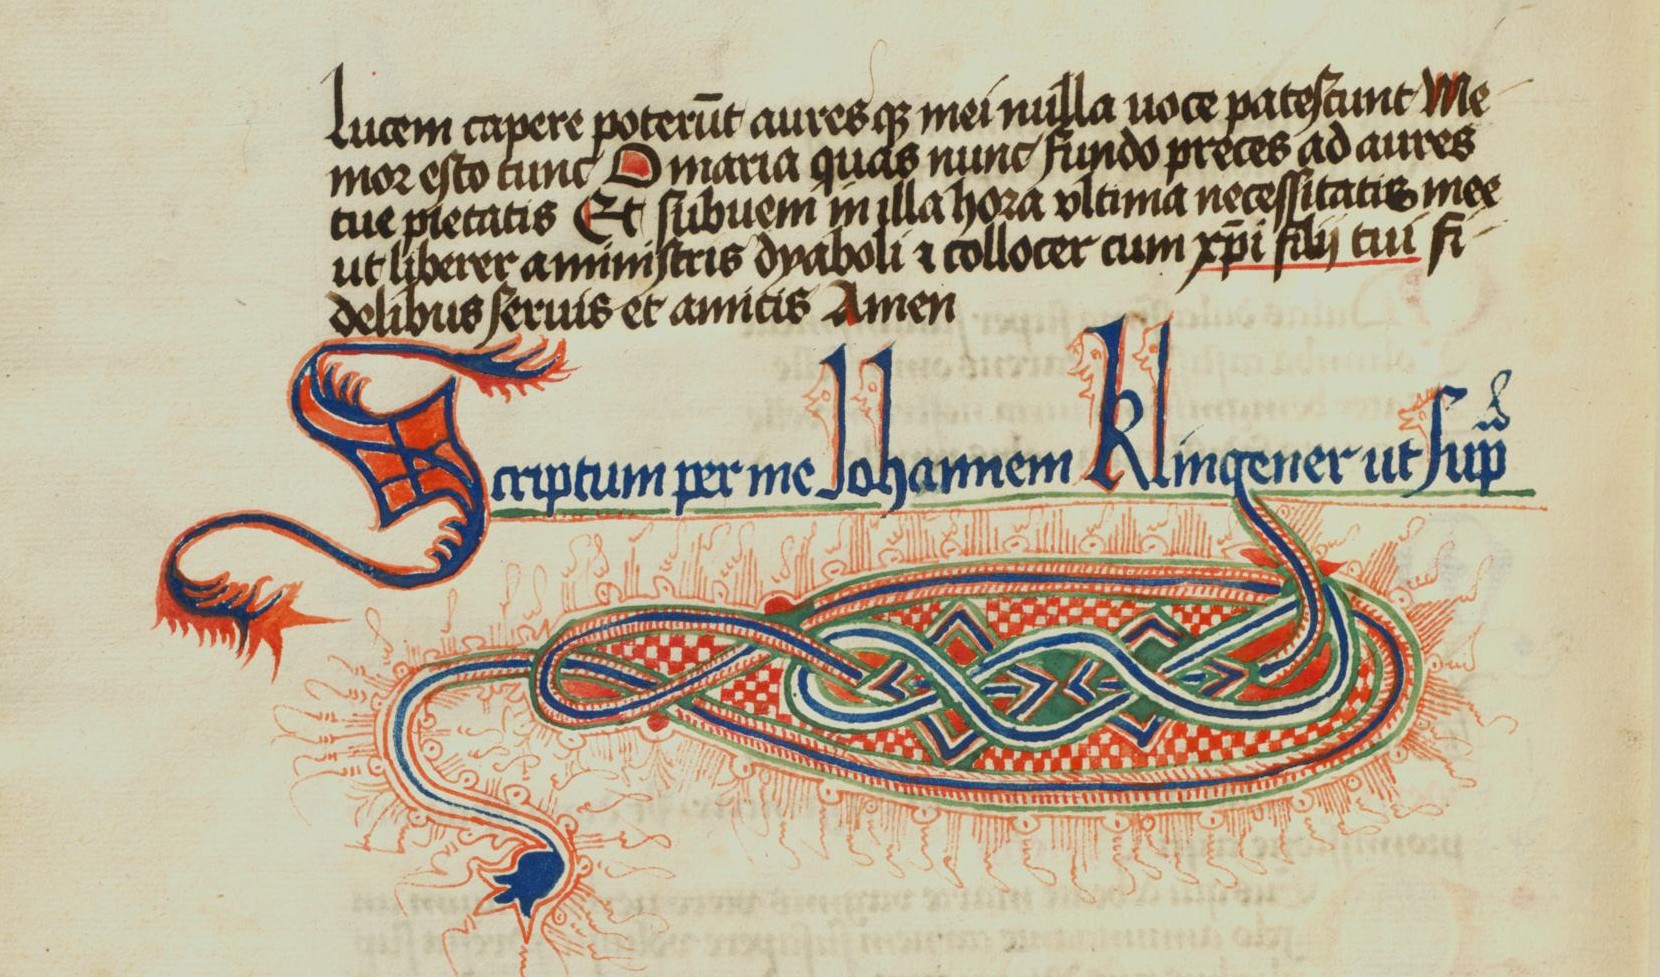 lucem capere poterūt auresqꝫ mei nulla uoce patescunt Me
mor esto tunc O maria quas nunc fundo preces ad aures
tue pietatis Et subueni in illa hora vltima necessitatis mee
ut liberer a ministris dyaboli ⁊ collocer cum xp̄i filij tui fi-
delibus seruis et amicis Amen
Scriptum per me Johannem Klingener ut sup̄